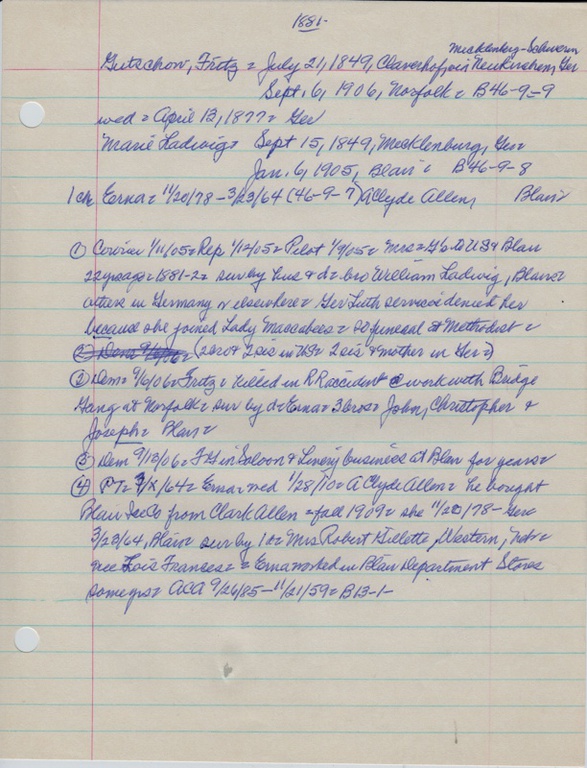 1881-
Mecklenburg-Schwerin
Gutschow, Fritz = July 21, 1849, Claverhof, ois Neukirchen, Ger
Sept. 6, 1906, Norfolk = B46-9-9
wed = April 13, 1877 = Ger
Marie Ladwig = Sept 15, 1849, Mecklenburg, Ger =
Jan. 6, 1905, Blair = B46-9-8
1 ch Erna = 11/20/78 - 3/23/64 (46-9-7) A Clyde Allen, Blair
① Courier 1/11/05 = Rep 1/12/05 = Pilot 1/9/05 = Mrs = G to US & Blair
22 yrs ago = 1881-2 = sur by hus & d = bro William Ladwig, Blair =
others in Germany & elsewhere = Ger Luth services denied her
because she joined Lady Maccabees = so funeral at Methodist =
(2 bro & 2 sis in US = 2 sis & mother in Ger =)
② Dem = 9/6/06 = Fritz = killed in RR accident @ work with Bridge
Gang at Norfolk = sur by d = Erna = 3 bros = John, Christopher &
Joseph = Blair =
③ Dem 9/13/06 = FG in Saloon & Livery business at Blair for years =
④ PT = 3/X/64 = Erna = wed 1/28/10 = A Clyde Allen = he bought
Blair Ice Co from Clark Allen = fall 1909 = she 11/20/78 - Ger
3/23/64, Blair = sur by 1 d = Mrs Robert Gillette, Western, Nebr =
nee Lois Frances = Erna worked in Blair Department Stores
some yrs = ACA 9/26/85 - 11/21/59 = B13-1-